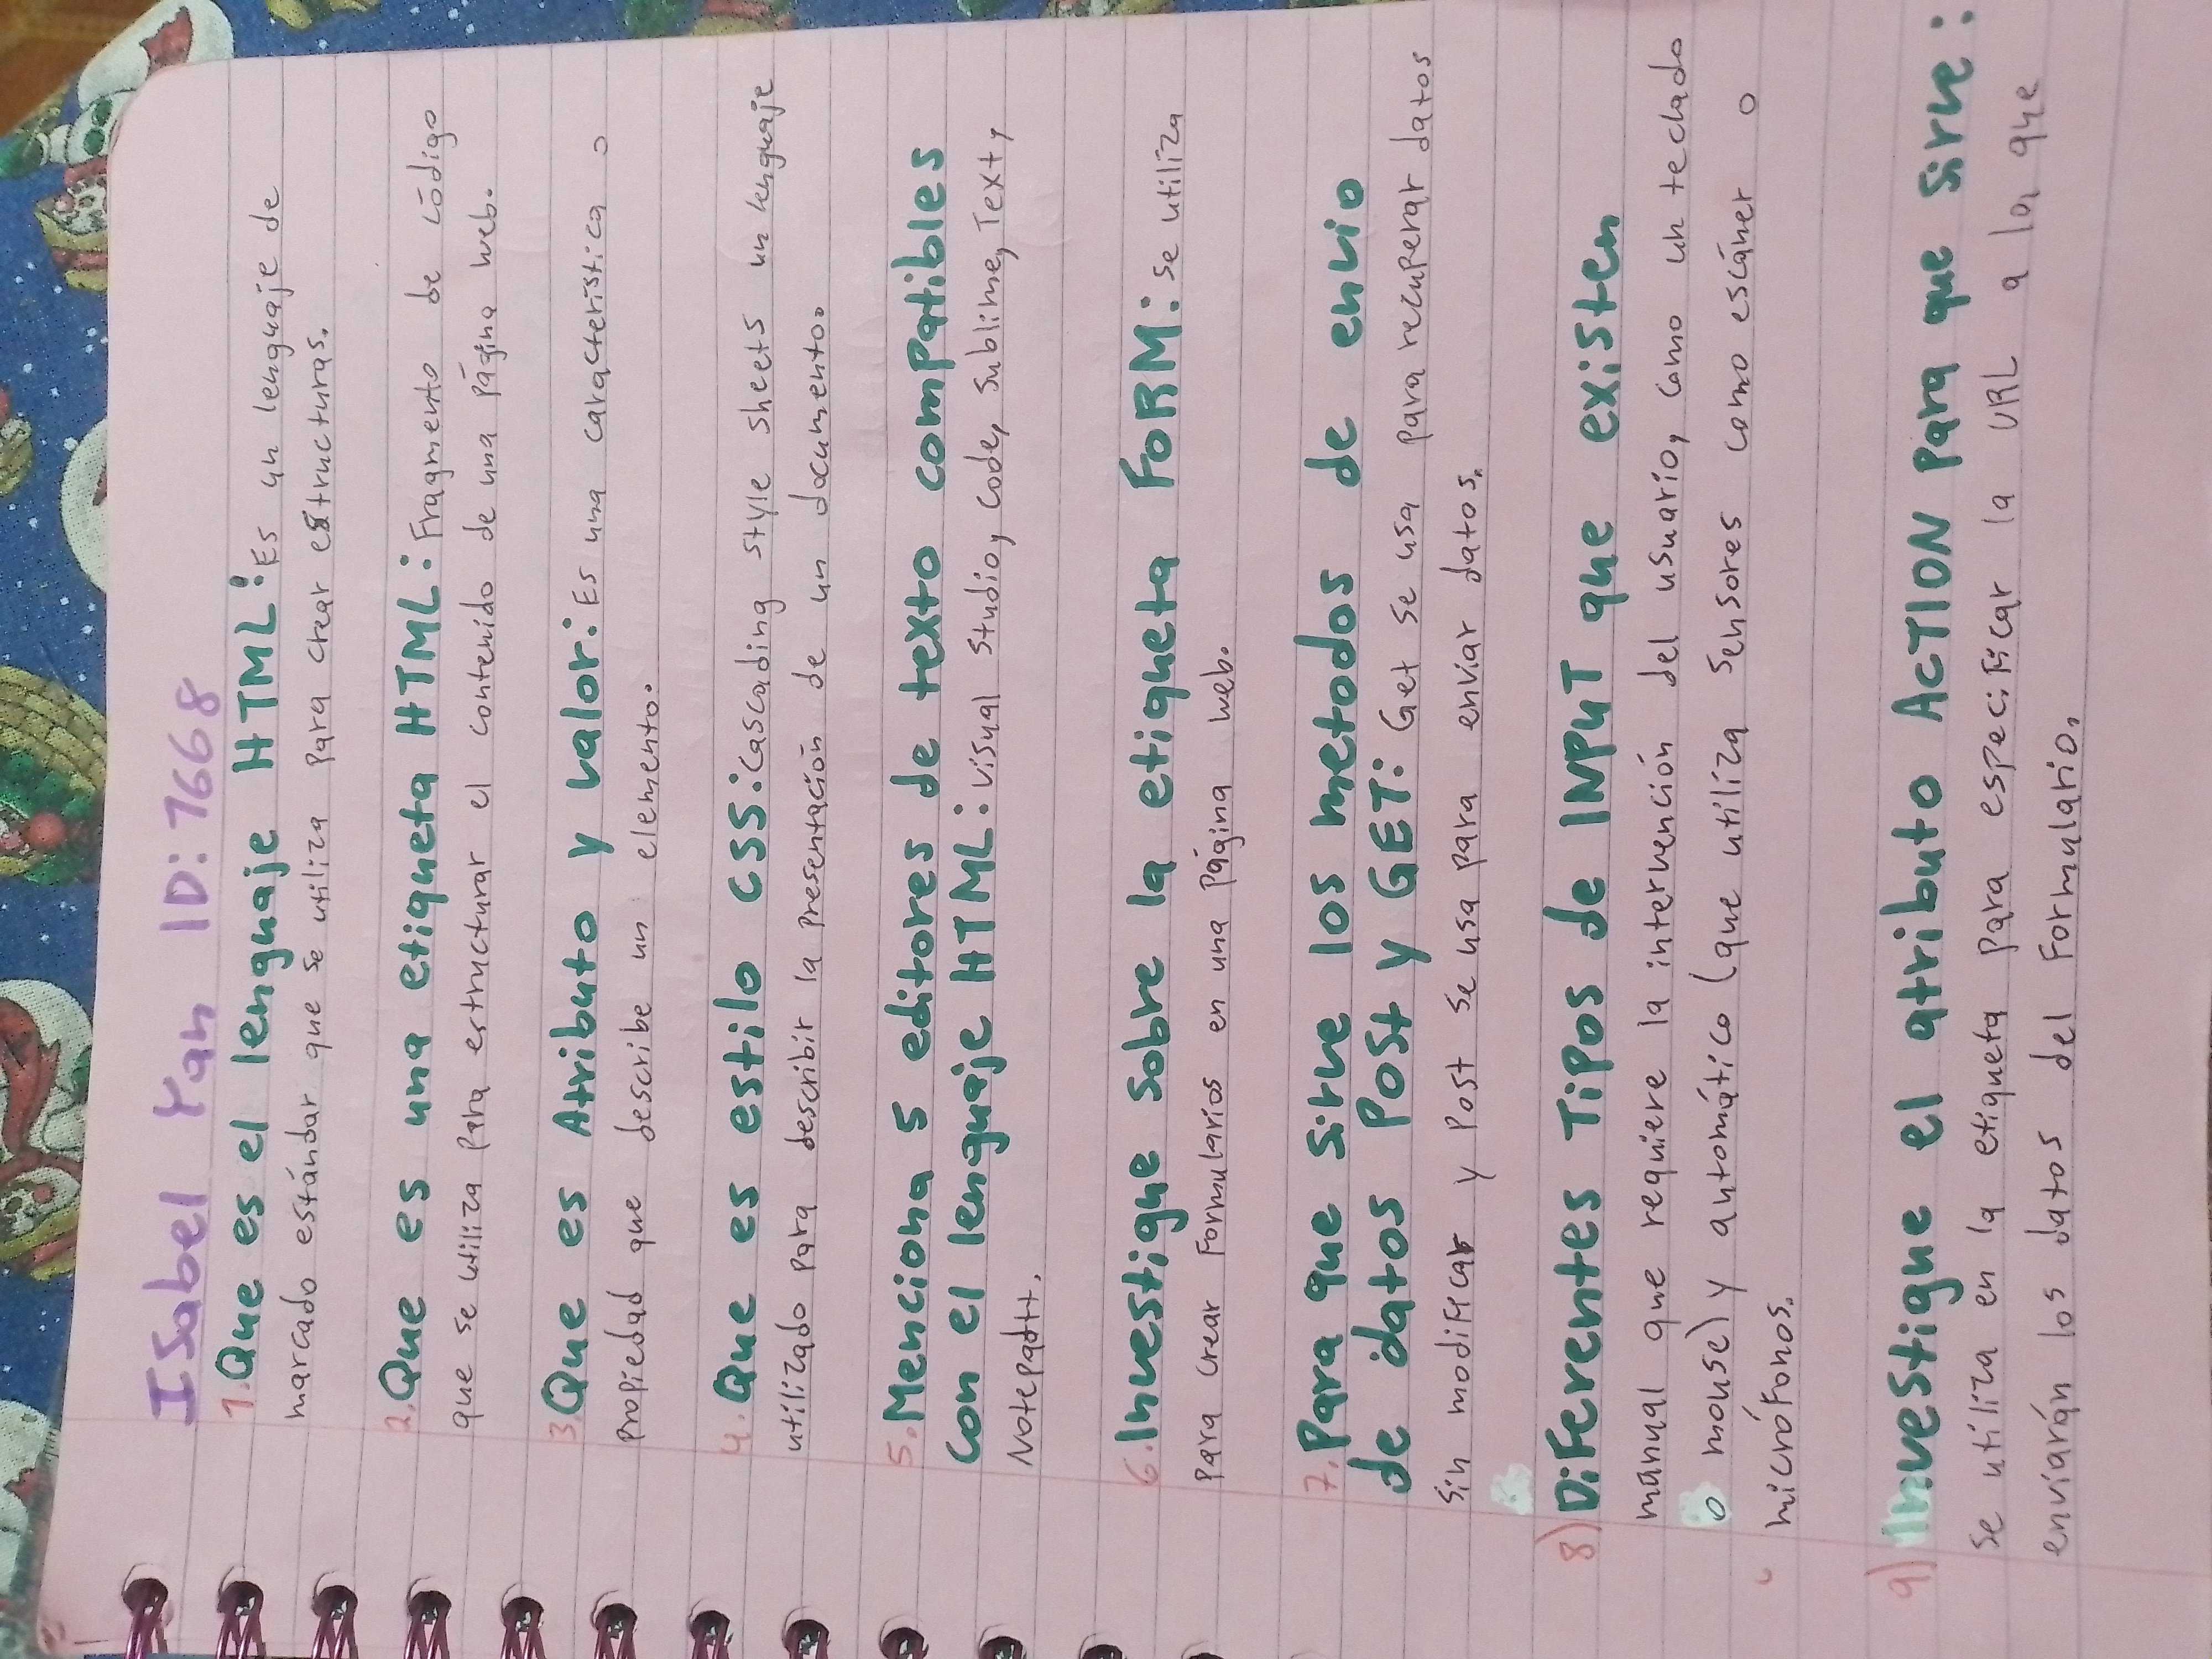 Isabel Yan ID: 7668
1. Que es el lenguaje HTML: Es un lenguaje de
marcado estándar que se utiliza para crear estructuras.
2. Que es una etiqueta HTML: Fragmento de código
que se utiliza para estructurar el contenido de una página web.
3. Que es Atributo y valor: Es una característica o
propiedad que describe un elemento.
4. Que es estilo CSS: Cascading style sheets un lenguaje
utilizado para describir la presentación de un documento.
5. Menciona 5 editores de texto compatibles
con el lenguaje HTML: Visual Studio, Code, Sublime, Text,
Notepad++.
6. Investigue sobre la etiqueta FORM: Se utiliza
para crear Formularios en una página web.
7. Para que sirve los metodos de envio
de datos Post y GET: Get se usa para recuperar datos
sin modificar y Post se usa para enviar datos.
8) Diferentes Tipos de INPUT que existen
manual que requiere la intervención del usuario, como un teclado
o mouse) y automático (que utiliza Sensores como escáner o
micróFonos.
9) Investigue el atributo ACTION Para que sirve:
Se utiliza en la etiqueta para especificar la URL a la que
enviarán los datos del Formulario.